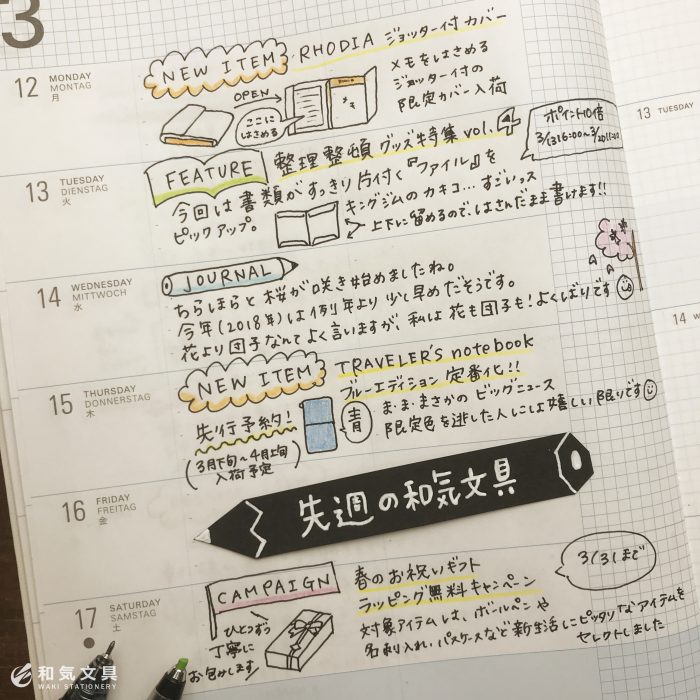 3
12 MONDAY
MONTAG
月
NEW ITEM
RHODIA ジョッター付カバー
メモをはさめる
ジョッター付の
限定カバー入荷
OPEN
ここに
はさめる
メモ
13 TUESDAY
DIENSTAG
火
FEATURE
整理整頓グッズ特集 vol.4
今回は書類がすっきり片付く『ファイル』を
ピックアップ。
キングジムのカキコ…すごいっス
上下に留めるので、はさんだまま書けます!!
ポイント10倍
14 WEDNESDAY
MITTWOCH
水
JOURNAL
ちらほらと桜が咲き始めましたね。
今年(2018年)は例年より少し早めだそうです。
花より団子なんてよく言いますが、私は花も団子も!よくばりです
15 THURSDAY
DONNERSTAG
木
NEW ITEM
TRAVELER'S notebook
ブルーエディション 定番化!!
ま・ま・まさかのビッグニュース
限定色を逃した人には嬉しい限りです
先行予約!
(3月下旬〜4月上旬
入荷予定)
青
16 FRIDAY
FREITAG
金
先週の和気文具
17 SATURDAY
SAMSTAG
土
CAMPAIGN
春のお祝いギフト
ラッピング無料キャンペーン
3/31まで
対象アイテムは、ボールペンや
名刺入れ・パスケースなど新生活にピッタリなアイテムを
セレクトしました
ひとつずつ
丁寧に
お包みします
13 TUESDAY
14 W
和気文具
WAKI STATIONERY